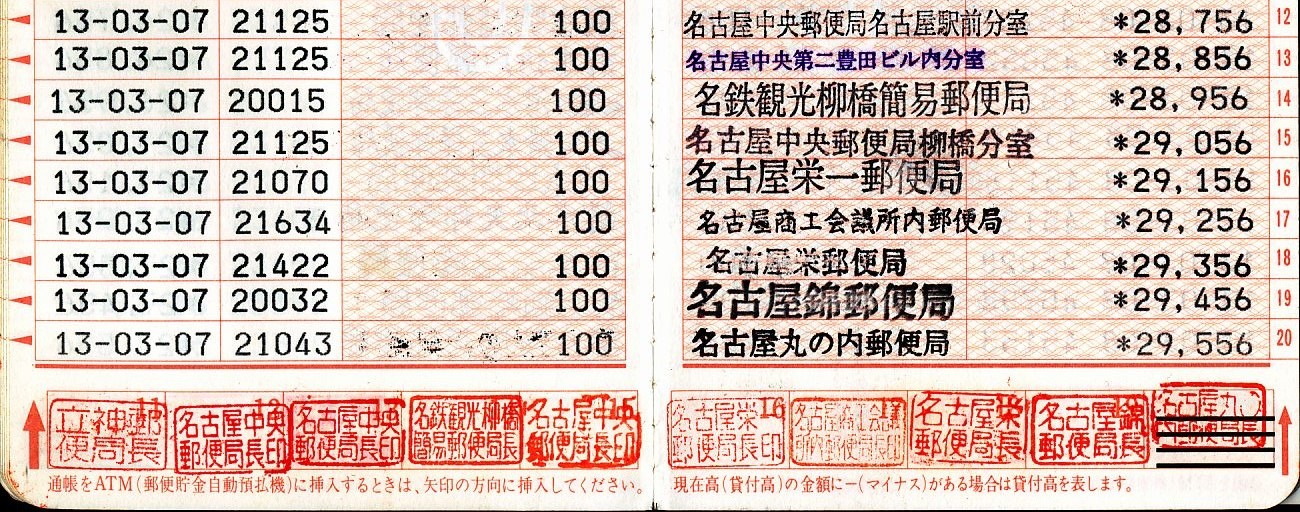 13-03-07 21125 100 名古屋中央郵便局名古屋駅前分室 *28,756 12
13-03-07 21125 100 名古屋中央第二豊田ビル内分室 *28,856 13
13-03-07 20015 100 名鉄観光柳橋簡易郵便局 *28,956 14
13-03-07 21125 100 名古屋中央郵便局柳橋分室 *29,056 15
13-03-07 21070 100 名古屋栄一郵便局 *29,156 16
13-03-07 21634 100 名古屋商工会議所内郵便局 *29,256 17
13-03-07 21422 100 名古屋栄郵便局 *29,356 18
13-03-07 20032 100 名古屋錦郵便局 *29,456 19
13-03-07 21043 100 名古屋丸の内郵便局 *29,556 20
立神郵便局長 11
名古屋中央郵便局長印 12
名古屋中央郵便局長印 13
名鉄観光柳橋簡易郵便局長
名古屋中央郵便局長印 15
名古屋栄郵便局長印 16
名古屋商工会議所内郵便局長 17
名古屋栄郵便局長
名古屋錦郵便局長
名古屋丸
通帳をATM(郵便貯金自動預払機)に挿入するときは、矢印の方向に挿入してください。
現在高(貸付高)の金額に-(マイナス)がある場合は貸付高を表します。